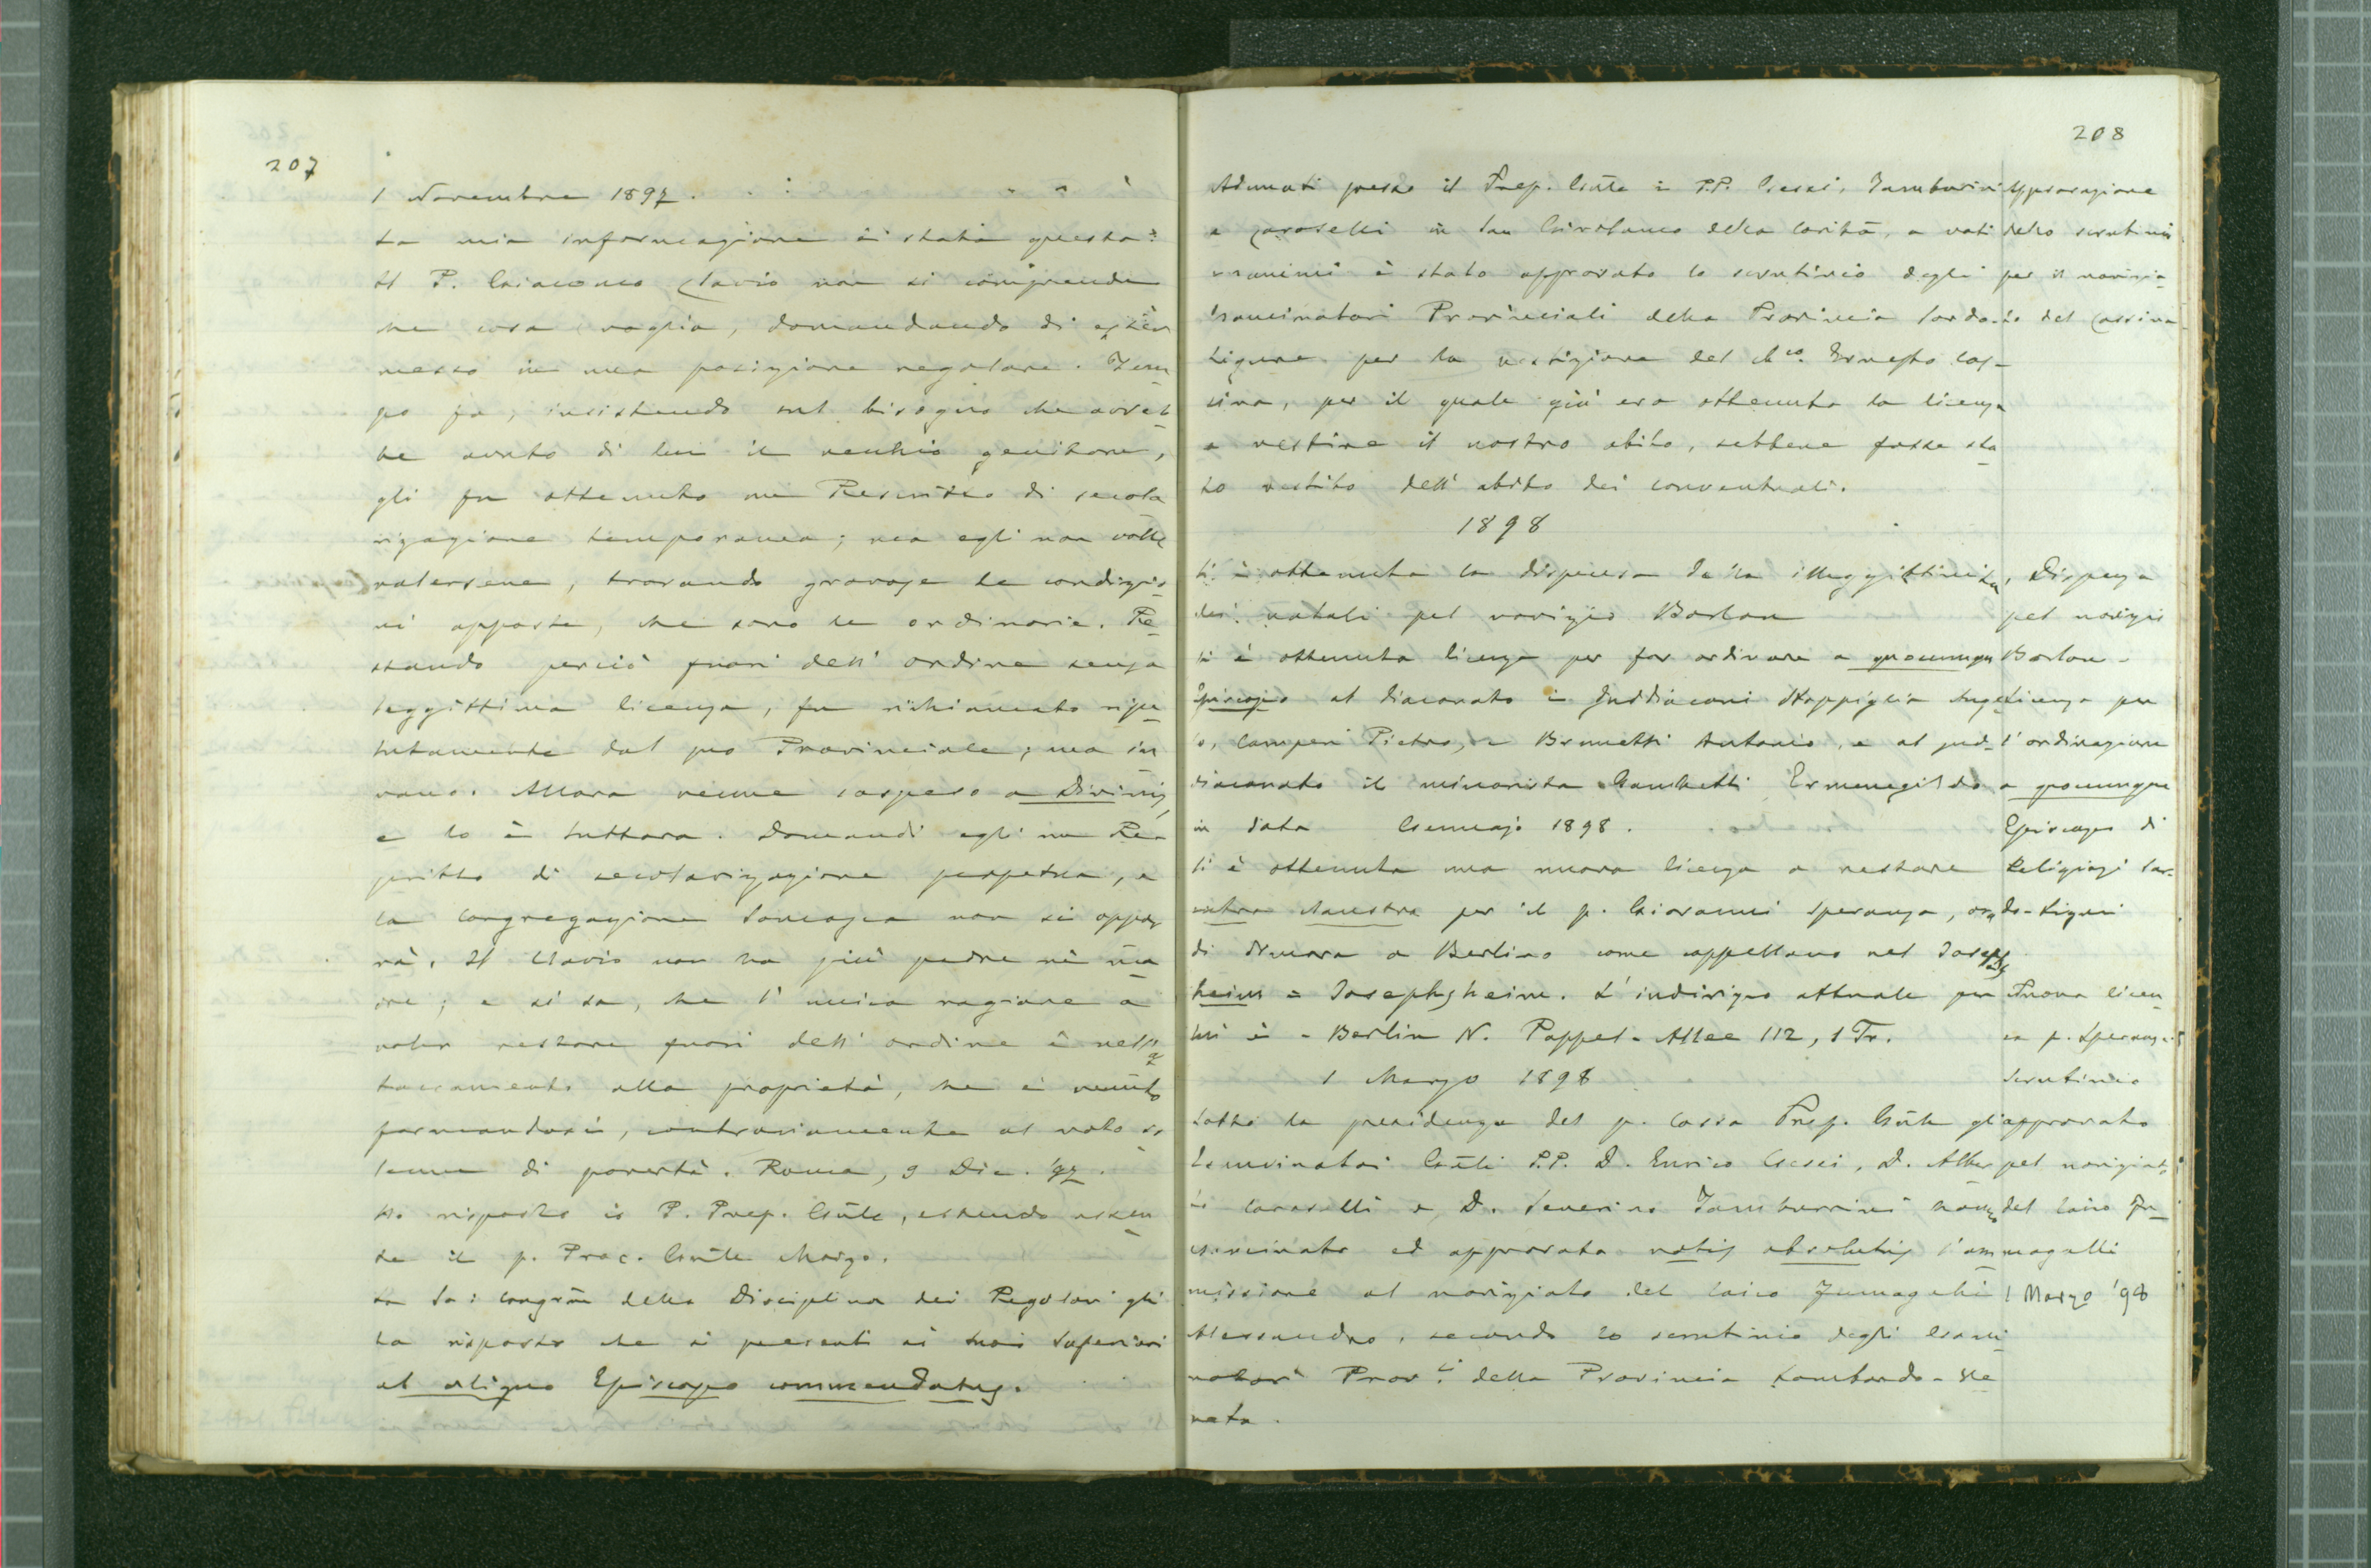 207
1 Novembre 1897.
La mia informazione è stata questa:
Il P. Giacomo Clavio non si comprende
che cosa voglia, domandando di esser
messo in una posizione regolare. Tem
po fa, insistendo sul bisogno che avreb
be avuto di lui il vecchio genitore,
gli fu ottenuto un Rescritto di secola
rizzazione temporanea; ma egli non volle
valersene, trovando gravose le condizio
ni apposte, che sono le ordinarie. Re
stando perciò fuori dell' ordine senza
leggittima licenza, fu richiamato ripe
tutamente dal suo Provinciale; ma in
vano. Allora venne sospeso a Divinis,
e lo è tuttora. Domandi egli un Re
scritto di secolarizzazione perpetua, e
la Congregazione Somasca non si oppor
rà. Il Clavio non ha più padre nè ma
dre; e si sa, che l' unica ragione a
voler restare fuori dell' ordine è nell' at
taccamento alla proprietà, che è venuto
formandosi, contrariamente al voto so
lenne di povertà. Roma, 9 Dic. '97.
Ho risposto io P. Prep. Gñle, essendo assen
te il p. Proc. Gñle Moizo.
La Sa: Congrñe della Disciplina dei Regolari gli
ha risposto che si presenti ai suoi Superiori
ab aliquo Episcopo commendatus.
208
Adunati presso il Prep. Gñle i P.P. Gessi, Tamburini
e Caroselli in San Girolamo della Carità, a voti
unanimi è stato approvato lo scrutinio degli
Esaminatori Provinciali della Provincia Sardo-
Ligure per la vestizione del Ch.co Ernesto Cas-
sina, per il quale già era ottenuta la licenza
a vestire il nostro abito, sebbene fosse sta
to vestito dell' abito dei conventuali.
Approvazione
dello scrutinio
per il novizia-
to del Cassina
1898
Si è ottenuta la dispensa della illeggittimità
dei natali pel novizio Borlon
Si è ottenuta licenza per far ordinare a quocumque
Episcopo al diaconato i Suddiaconi Stoppiglia Ange
lo, Camperi Pietro, e Brunetti Antonio, e al sud-
diaconato il minorista Gambetti Ermenegildo
in data Gennajo 1898.
Si è ottenuta una nuova licenza a restare
extra claustra per il p. Giovanni Speranza, ora
di dimora a Berlino come cappellano nel Josephs
heim = Josephsheim. L' indirizzo attuale per
lui è - Berlin N. Pappel-Allee 112, 1 Tr.
Dispensa
pel novizio
Borlon -
Licenza per
l' ordinazione
a quocumque
Episcopo di
Religiosi Sar-
do-Liguri
Nuova licen
za p. Speranza
1 Marzo 1898
Sotto la presidenza del p. Cossa Prep. Gñle gli
Esaminatori Gñli P.P. D. Enrico Gessi, D. Alber
to Caroselli e D. Severino Tamburrini hanno
esaminato ed approvato votis absolutis l' am
missione al noviziato del laico Fumagalli
Alessandro, secondo lo scrutinio degli Esami
natori Prov.li della Provincia Lombardo-Ve
neta.
Scrutinio
approvato
pel noviziato
del laico Fu-
magalli
1 Marzo '98